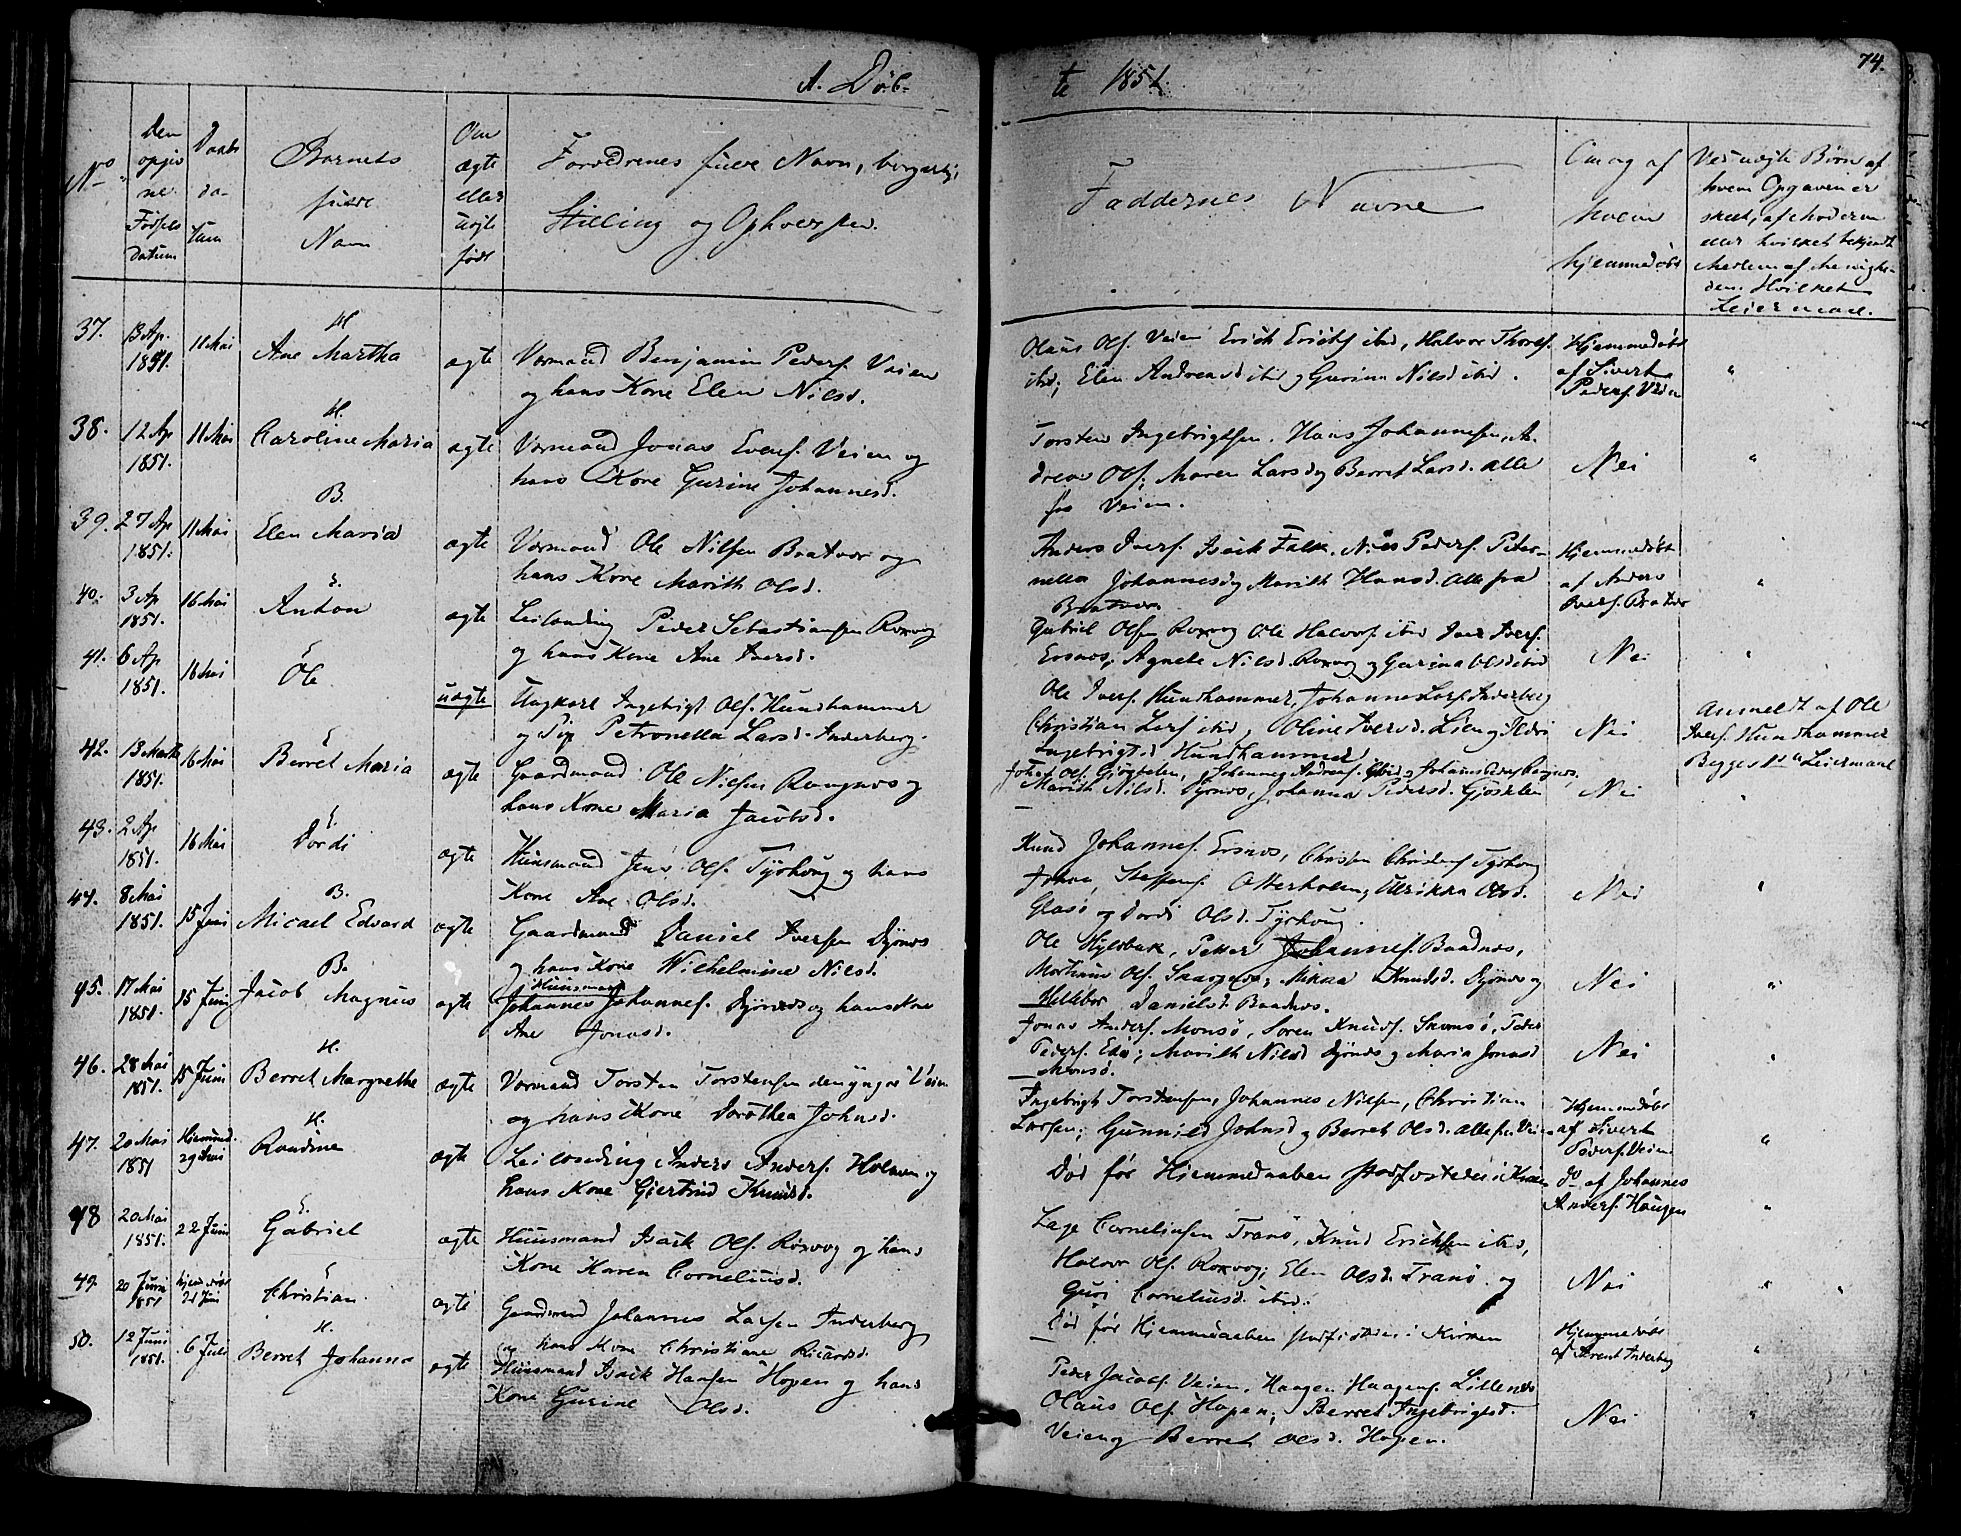 74.
A. Døb-
te 1851.
No
Den
opgiv
ne
Fødsels
datum
Daabs
da-
tum
Barnets
fulde
Navn
Om
ægte
eller
uægte
født
Forældrenes fulde Navn, borgerlig
Stilling og Opholdssted.
Faddernes Navne
Om og af
hvem
hjemmedøbt
Ved uægte Børn af
hvem Opgaven er
skeet, af Moderen
eller hvilket bekjendt
Medlem af Menighe-
den. Hvilket
Leiermaal.
37.
13 Ap.
1851.
11 Mai
H
Ane Martha
ægte
Vormand Benjamin Peders. Veien
og hans Kone Elen Nilsd.
Olaus Ols. Veien Erich Erichs ibid, Halvor Thores.
ibid; Elen Andreasd ibid og Gurina Nilsd ibid.
Hjemmedøbt
af Sivert
Peders. Veien
"
38.
12 Ap
1851.
11 Mai
H.
Caroline Maria
ægte
Vormand Jonas Evens. Veien og
hans Kone Gurine Johannesd.
Torsten Ingebrigtsen. Hans Johannesen, A-
dreas Ols; Maren Larsd og Berret Larsd. alle
fra Veien.
Nei
"
39.
27 Ap
1851.
11 Mai
B.
Elen Maria
ægte
Vormand Ole Nilsen Braatvær og
hans Kone Marith Olsd.
Anders Ivers. Isack Falk. Niels Peders. Peter-
nella Johannesd og Marith Hansd. alle fra
Braatvær.
Hjemmedøbt
af Anders
Ivers. Bratvær
"
40.
3 Ap
1851.
16 Mai
E.
Anton
ægte
Leilending Peder Sebastiansen Roxvog
og hans Kone Ane Iversd.
Gabriel Olsen Roxvog Ole Halvors. ibid Iver Ivers.
Ersnes; Agnete Nilsd. Roxvog og Gurina Olsd ibid
Nei
"
41.
6 Ap
1851.
16 Mai
E
Ole
uægte
Ungkarl Ingebrigt Ols. Hundhammer
og Pip Petronella Larsd. Inderberg.
Ole Ivers. Hundhammer, Johannes Lars. Inderberg
Christian Lars ibid, Oline Iversd. Lien og Ildri
Ingebrigtsd. Hundhammer
Nei
Anmeldt af Ole
Ivers. Hundhammer
Begges 1ste Leiermaal
42.
13 Marts
1851.
16 Mai
E
Berret Maria
ægte
Gaardmand Ole Nielsen Rangnæs og
hans Kone Maria Jacobsd.
Marith Nilsd. Dyrnes, Johanna Pedersd. Gjøstelen
Nei
"
43.
2 Ap
1851.
16 Mai
E.
Dordi
ægte
Huusmand Jens Ols. Tyrhoug og hans
Kone Ane Olsd.
Knud Johannes. Ersnes, Christen Christens Tyrhoug
Johan Steffens. Otterholm; Ulrikka Olsd.
Glasø og Dordi Olsd. Tyrhoug.
Nei
"
44.
8 Mai
1851.
15 Juni
B.
Micael Edvard
ægte
Gaardmand Daniel Iversen Dyrnes
og hans Kone Wilhelmine Nilsd.
Ole Hylsbak, Petter Johannes. Baadnes,
Morthinus Ols. Skarpnes; Mikka Knudsd. Dyrnes og
Hellebor Danielsd. Baadnes.
Nei
"
45.
17 Mai
1851.
15 Juni
B.
Jacob Magnus
ægte
Huusmand
Johannes Johannes. Dyrnes og hans Kone
Ane Jonasd.
Jonas Anders. Monsø, Soren Knuds. Skonsø, Peder
Peders. Edø; Marith Nilsd Dyrnes og Maria Jonasd
Monsø.
Nei
"
46.
28 Mai
1851.
15 Juni
H.
Berret Margrethe
ægte
Vormand Torsten Torstensen den yngre Veien
og hans Kone Dorothea Johnsd.
Ingebrigt Torstensen, Johannes Nilsen, Christian
Larsen; Gunnild Johnsd og Berret Olsd. alle fra Veien
Hjemmedøbt
af Sivert
Peders. Veien
"
47.
20 Mai
1851
Hjemmed.
29 Mai
H.
Randine
ægte
Leilending Anders Anders. Holmen og
hans Kone Giertrud Knudsd.
Død før Hjemmedaaben stadfæstedes i Kirken
Do af Johannes
Anders. Haugen
"
48
20 Mai
1851.
22 Juni
E.
Gabriel
ægte
Huusmand Isack Ols. Roxvog og hans
Kone Karen Corneliusd.
Lage Corneliusen Tranø, Knud Ericksen ibid,
Halvor Ols. Roxvog; Elen Olsd. Tranø og
Guri Corneliusd. ibid.
Nei
"
49.
20 Juni
1851
hjemdøbt
21 Juni
E
Christian
ægte
Gaardmand Johannes Larsen Inderberg
og hans Kone Christiane Ricardsd.
Død før Hjemmedaaben stadfæstedes i Kirken
Hjemmedøbt
af Arent Inderberg
"
50.
12 Juni
1851.
6 Juli
H.
Berret Johanna
ægte
Huusmand Isack Hansen Hopen og hans
Kone Gurine Olsd.
Peder Jacobs. Veien, Haagen Haagens. Lillenes
Olaus Ols. Hopen; Berret Ingebrigtsd.
Veien og Berret Olsd. Hopen.
Nei
"